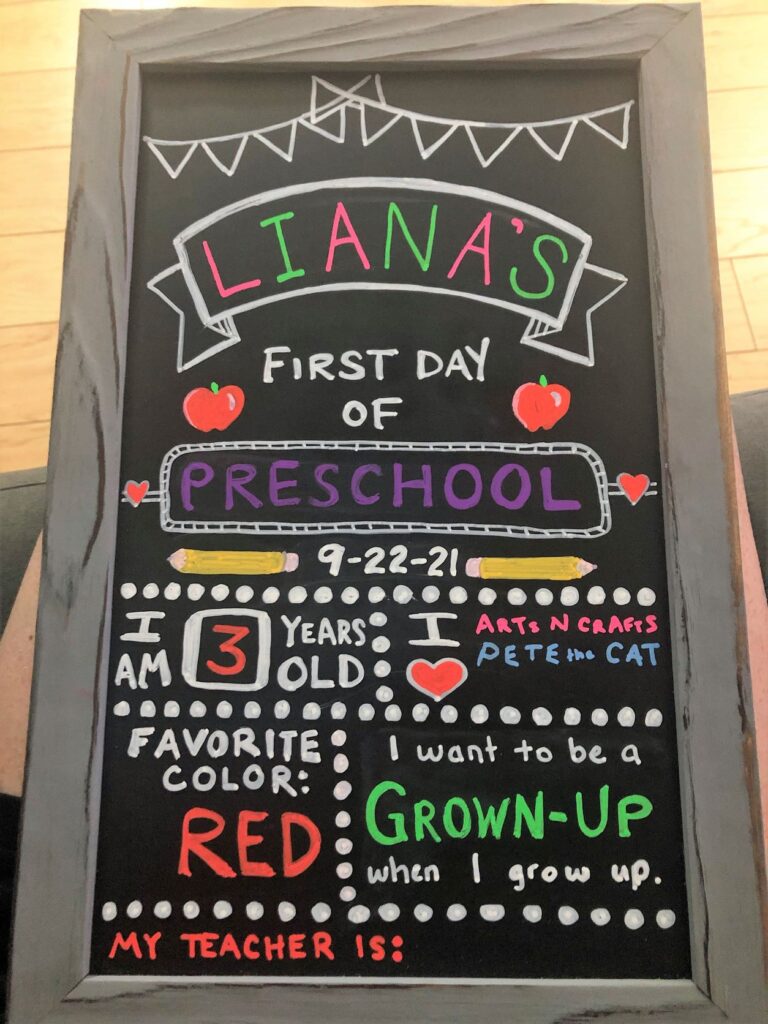 LIANA'S
FIRST DAY
OF
PRESCHOOL
9-22-21
I
AM
3
YEARS
OLD
I
ARTS N CRAFTS
PETE the CAT
FAVORITE
COLOR:
RED
I want to be a
GROWN-UP
when I grow up.
MY TEACHER IS: